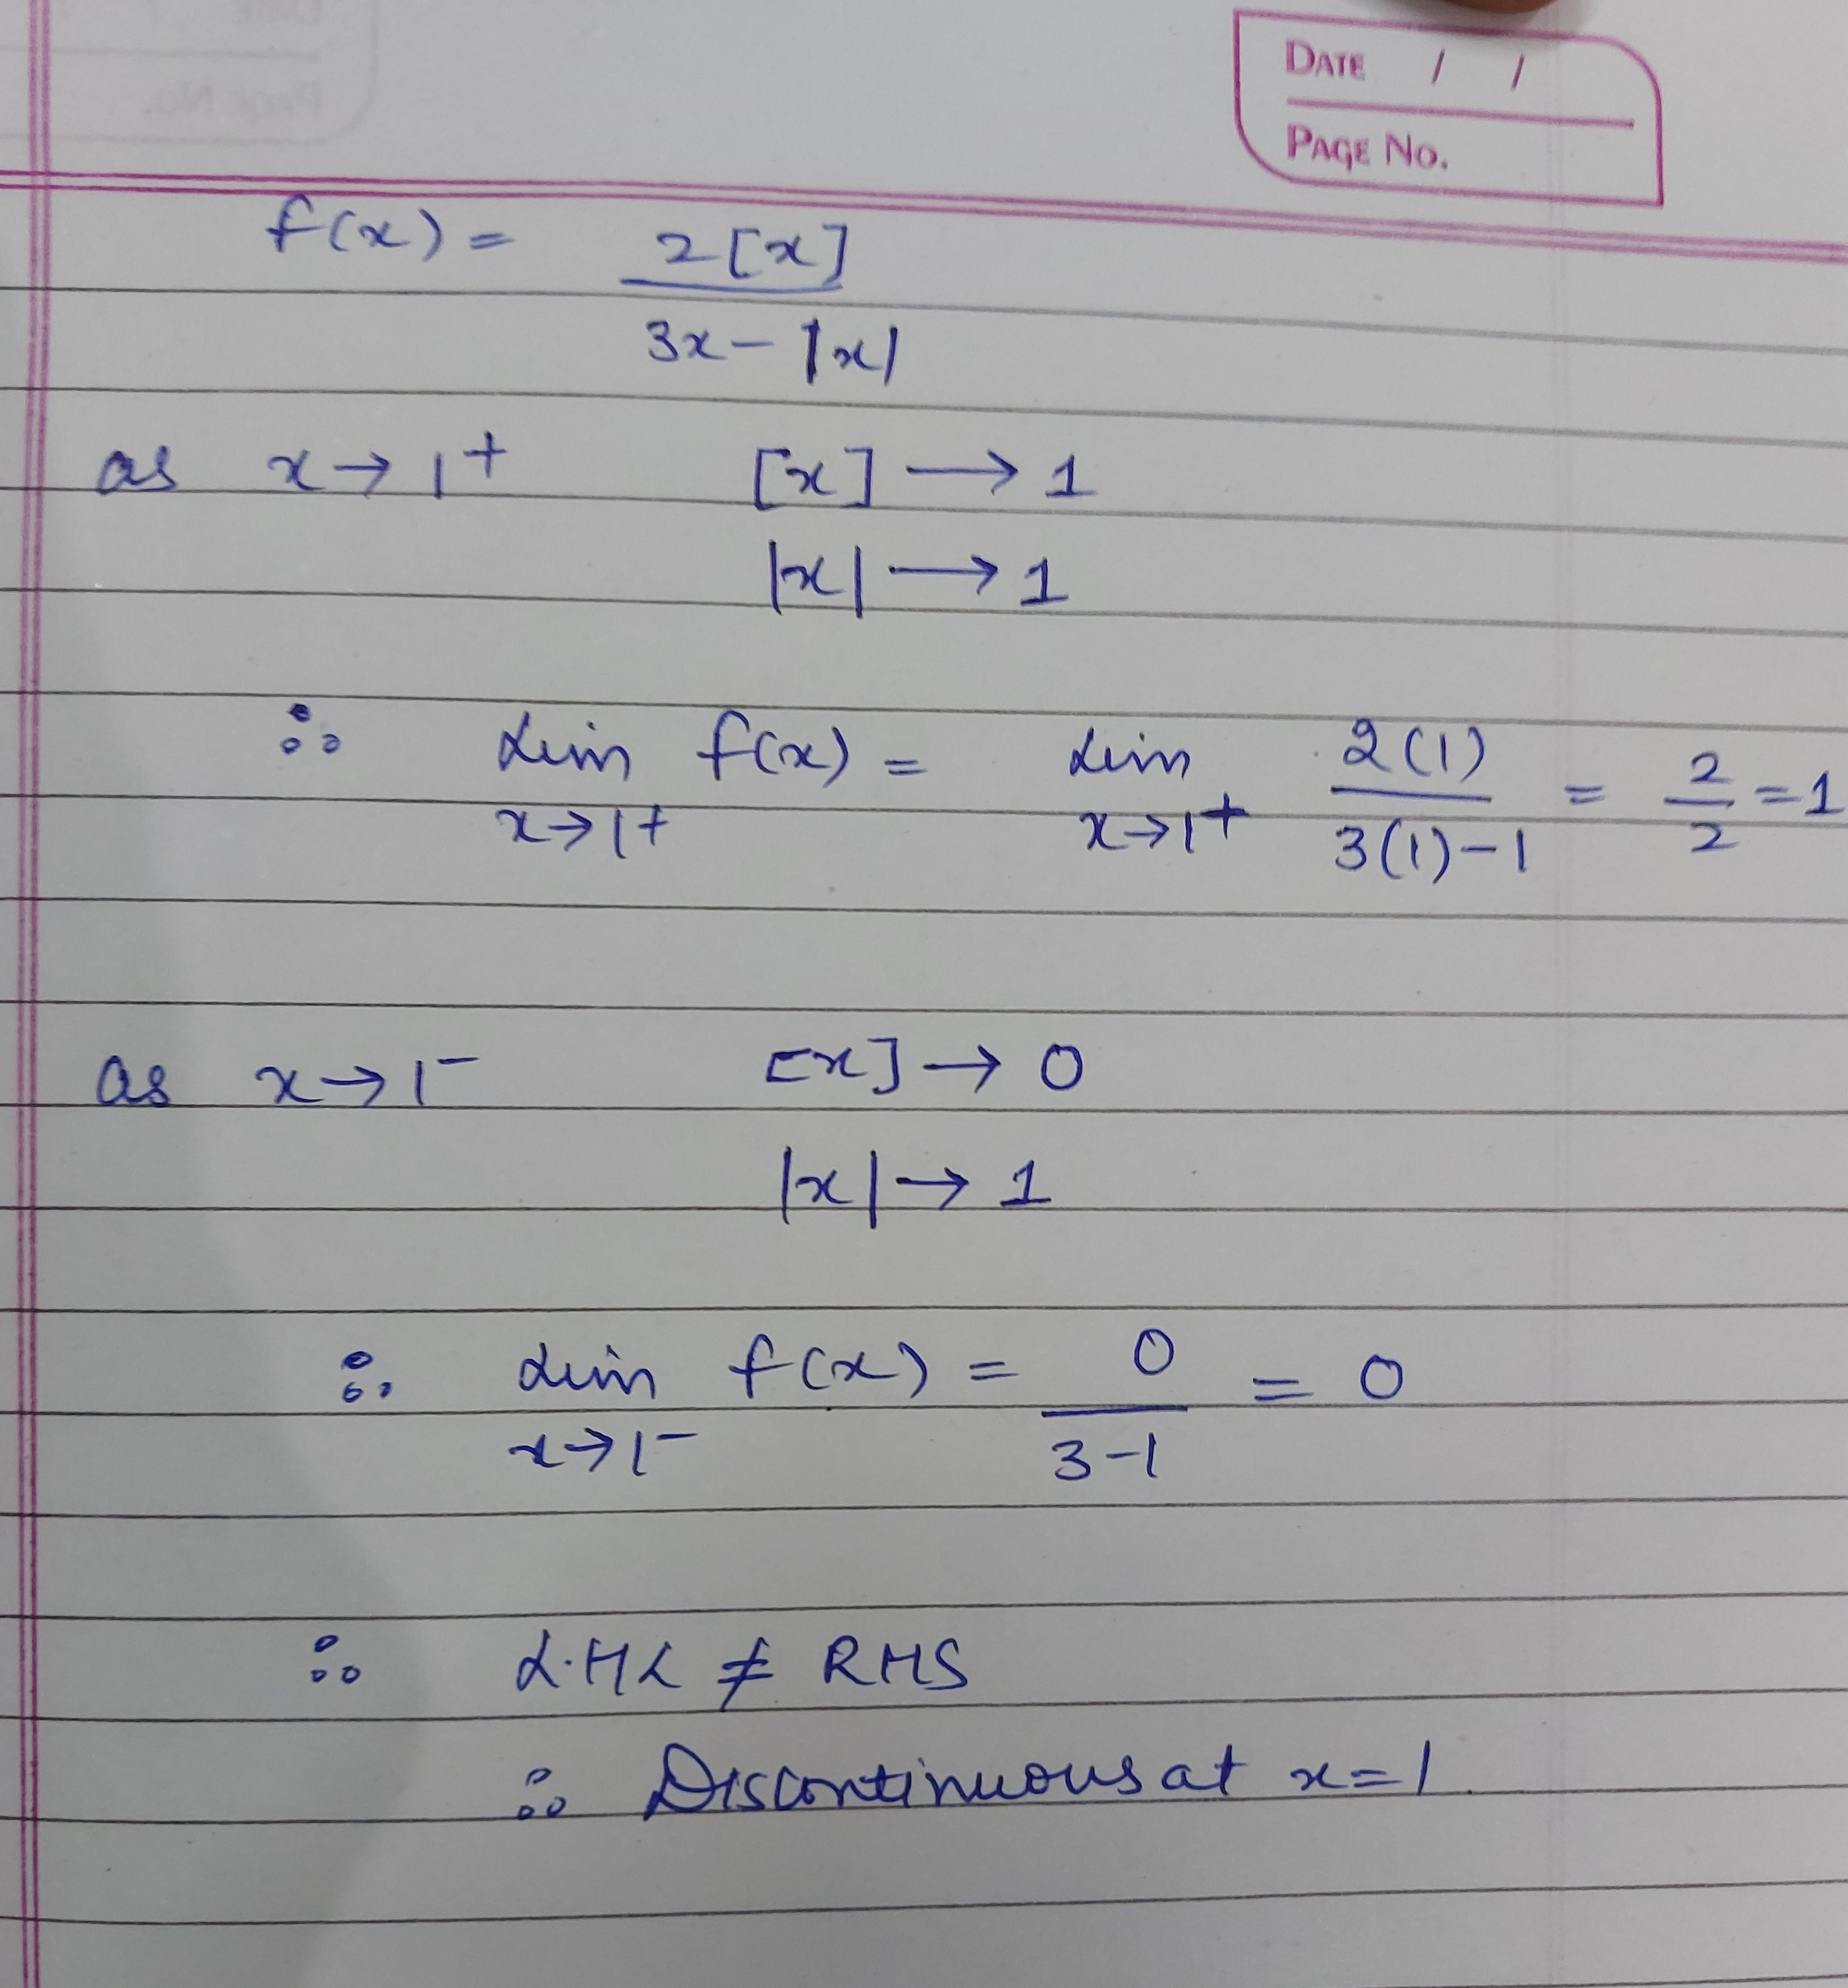 DATE / /
PAGE No.
f(x) = 2[x]
3x - |x|
as x → 1+ [x] → 1
|x| → 1
∴ Lim f(x) = Lim 2(1) = 2 = 1
x→1+ x→1+ 3(1)-1 2
as x → 1- [x] → 0
|x| → 1
∴ Lim f(x) = 0 = 0
x→1- 3-1
∴ L.HL ≠ RHS
∴ Discontinuous at x=1.